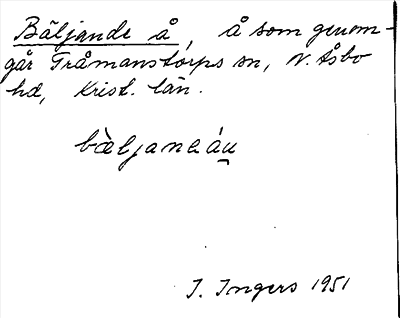 Bäljande å, å som genom-
går Tråmanstorps sn, N. Åsbo
hd, Krist. län.
bæljaneáu
I. Ingers 1951